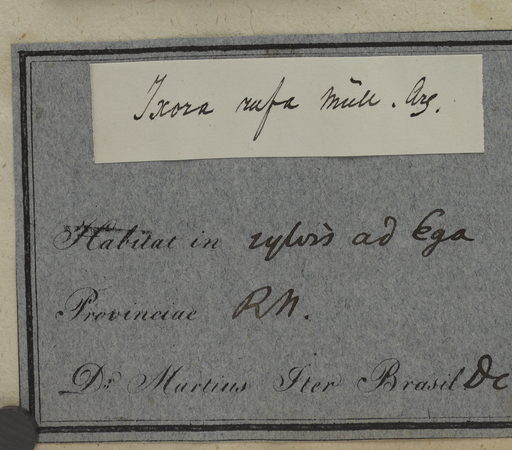 Ixora rufa Müll. Arg.
Habitat in sylvis ad Ega
Provinciae RN.
Dr. Martius Iter Brasil Dc